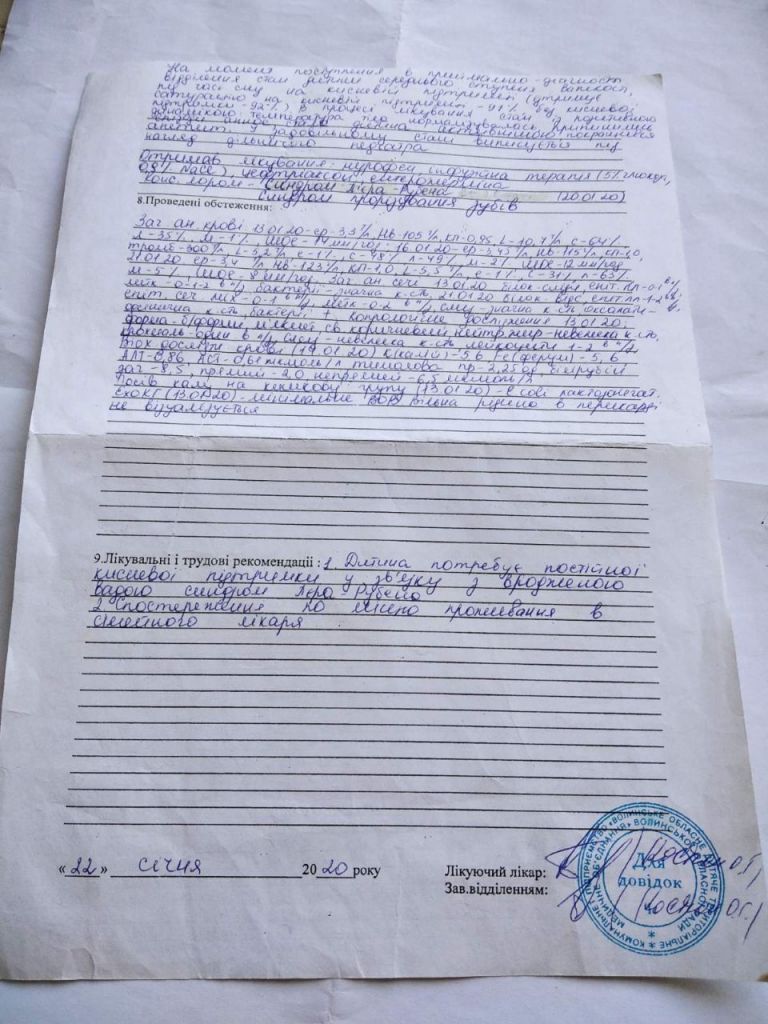 На момент поступлення в приймально-діагност.
відділення стан дитини середнього ступеня важкості,
під час сну на кисневій підтримці (утримує
сатурацію на кисневій підтримці - 91% без кисневої
підтримки - 92%) В процесі лікування стан з позитивною
динамікою температура тіла нормалізувалась,
апетит. У задовільному стані виписується під
нагляд дільничого педіатра
Отримав лікування: нурофєн, інфузійна терапія (5% глюкоза,
0,9% NaCl), цефтріаксон,
Конс. лором - Синдром Лєра-Рубена (20.01.20)
Синдром прорізування зубів
8.Проведені обстеження:
Заг ан крові 13.01.20-ер-3,3 Т/л, Нв 105 г/л, КП-0,95, L-10,7 г/л, с-64%
Л-35% м-1% ШОЕ-14 мм/год. 16.01.20 ер-3,43 Т/л, Нв-115 г/л, КП-1,0,
тромб-300 г/л, L-5,2 г/л е-1% с-48% л-49% м-2% ШОЕ-12 мм/год
21.01.20 ер-3,4 Т/л Нв-123 г/л КП-1,0, L-5,5 г/л, е-1% с-31% л-63%
м-5% ШОЕ-8 мм/год. Заг ан сечі 13.01.20 білок-сліди, епіт. пл-0-1 в п/з
лейк-0-1-2 в п/з бактерії - значна к-сть, 21.01.20 білок-відс, епіт пл-1-2 в п/з
епіт. сеч. шлх-0-1 в п/з, лейк-0-2 в п/з, слиз-значна к-сть оксалати-
к-сть бактерії + Копрологічне дослідження 13.01.20:
форма б/форми, м'який св коричневий нейтр жир - невелика к-сть,
крохмаль-один в п/з слиз - невелика к-сть лейкоцити 1-2 в п/з
Біох дослідж крові (14.01.20) К(калій)-5,6 Fe(ферум)-5,6
АЛТ-0,86, АСТ-0,61 ммоль/л тимолова пр-2,25 од, білірубін
заг-8,5, прямий-2,0 непрямий-6,5 мкмоль/л
Посів калу на кишкову групу (13.01.20) - E coli лактозонегат.
ЕхоКГ (13.01.20) - мінімальне ВОВ вільна рідина в перикарді
не візуалізується
9.Лікувальні і трудові рекомендації : 1. Дитина потребує постійної
кисневої підтримки у зв'язку з вродженою
вадою синдром Лєра Рубена
2. Спостереження по місцю проживання в
сімейного лікаря
«22» січня 2020 року
Лікуючий лікар: Костюк О.Г.
Зав.відділенням: Костюк О.Г.
Для
довідок
КОМУНАЛЬНЕ ПІДПРИЄМСТВО «ВОЛИНСЬКЕ ОБЛАСНЕ ДИТЯЧЕ ТЕРИТОРІАЛЬНЕ
МЕДИЧНЕ ОБ'ЄДНАННЯ» ВОЛИНСЬКОЇ ОБЛАСНОЇ РАДИ